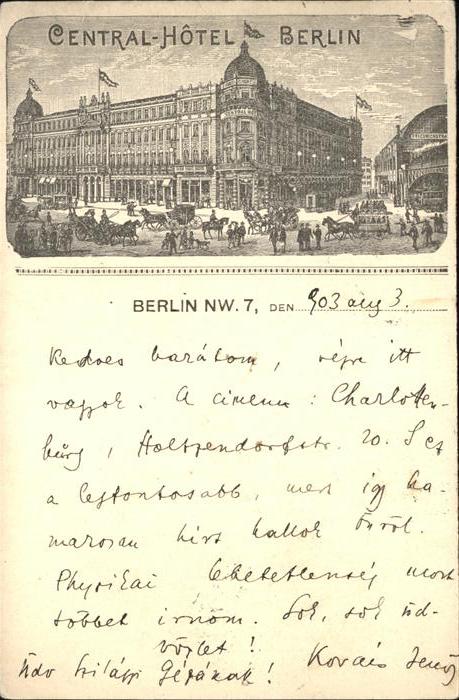 CENTRAL-HÔTEL BERLIN
BERLIN NW. 7, DEN 903 aug 3.
Kedves barátom, végre itt
vagyok. A címem: Charlotten-
burg, Holtzendorffstr. 20. S ez
a legfontosabb, mert így ha-
marosan hírt hallok Önről.
Physikai lehetetlenség most
többet írnom. Sok, sok üd-
vözlet!
Üdv Szilágyi Gézának! Kovács Jenő